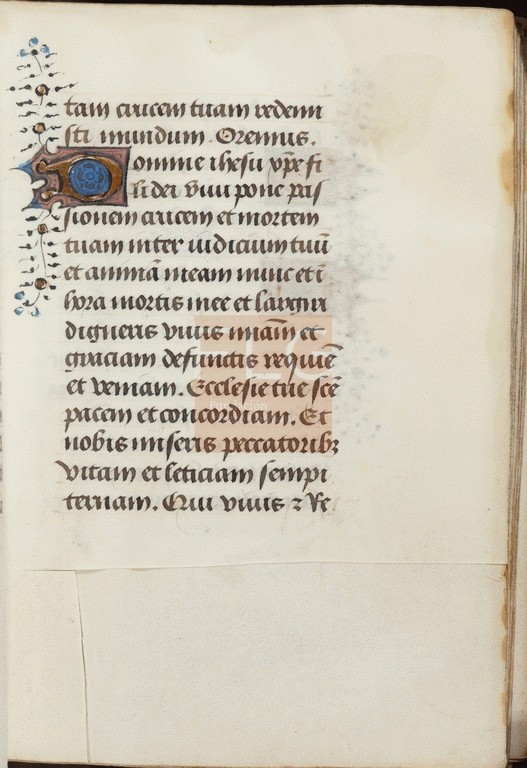 tam crucem tuam redemi
sti mundum. Oremus.
Domine ihesu xp̄e fi
li dei viui pone pas
sionem crucem et mortem
tuam inter iudicium tuū
et animā meam nunc et ī
hora mortis mee et largiri
digneris viuis miam̄ et
graciam defunctis requiē
et veniam. Ecclesie tue scē
pacem et concordiam. Et
nobis miseris peccatoribꝫ
vitam et leticiam sempi
ternam. Qui viuis ⁊ Re